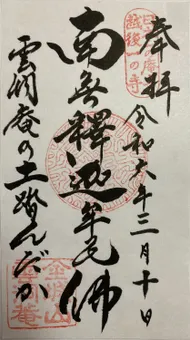 奉拝
越後一の寺
令和六年三月十日
南無釋迦牟尼佛
雲洞庵の土踏んだか
雲洞庵